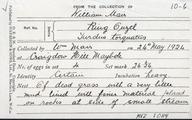 FROM THE COLLECTION OF 10-6
William Mair
Ring Ouzel
Turdus torquatus
Collected by Wm Mair on 26th May 1924
at Craigdow Hill Maybole
No. of eggs in set Set mark 26 36
Identity Certain Incubation heavy
Nest Of dead grass with a very little
and lined with finer material placed
on rocks at side of small stream